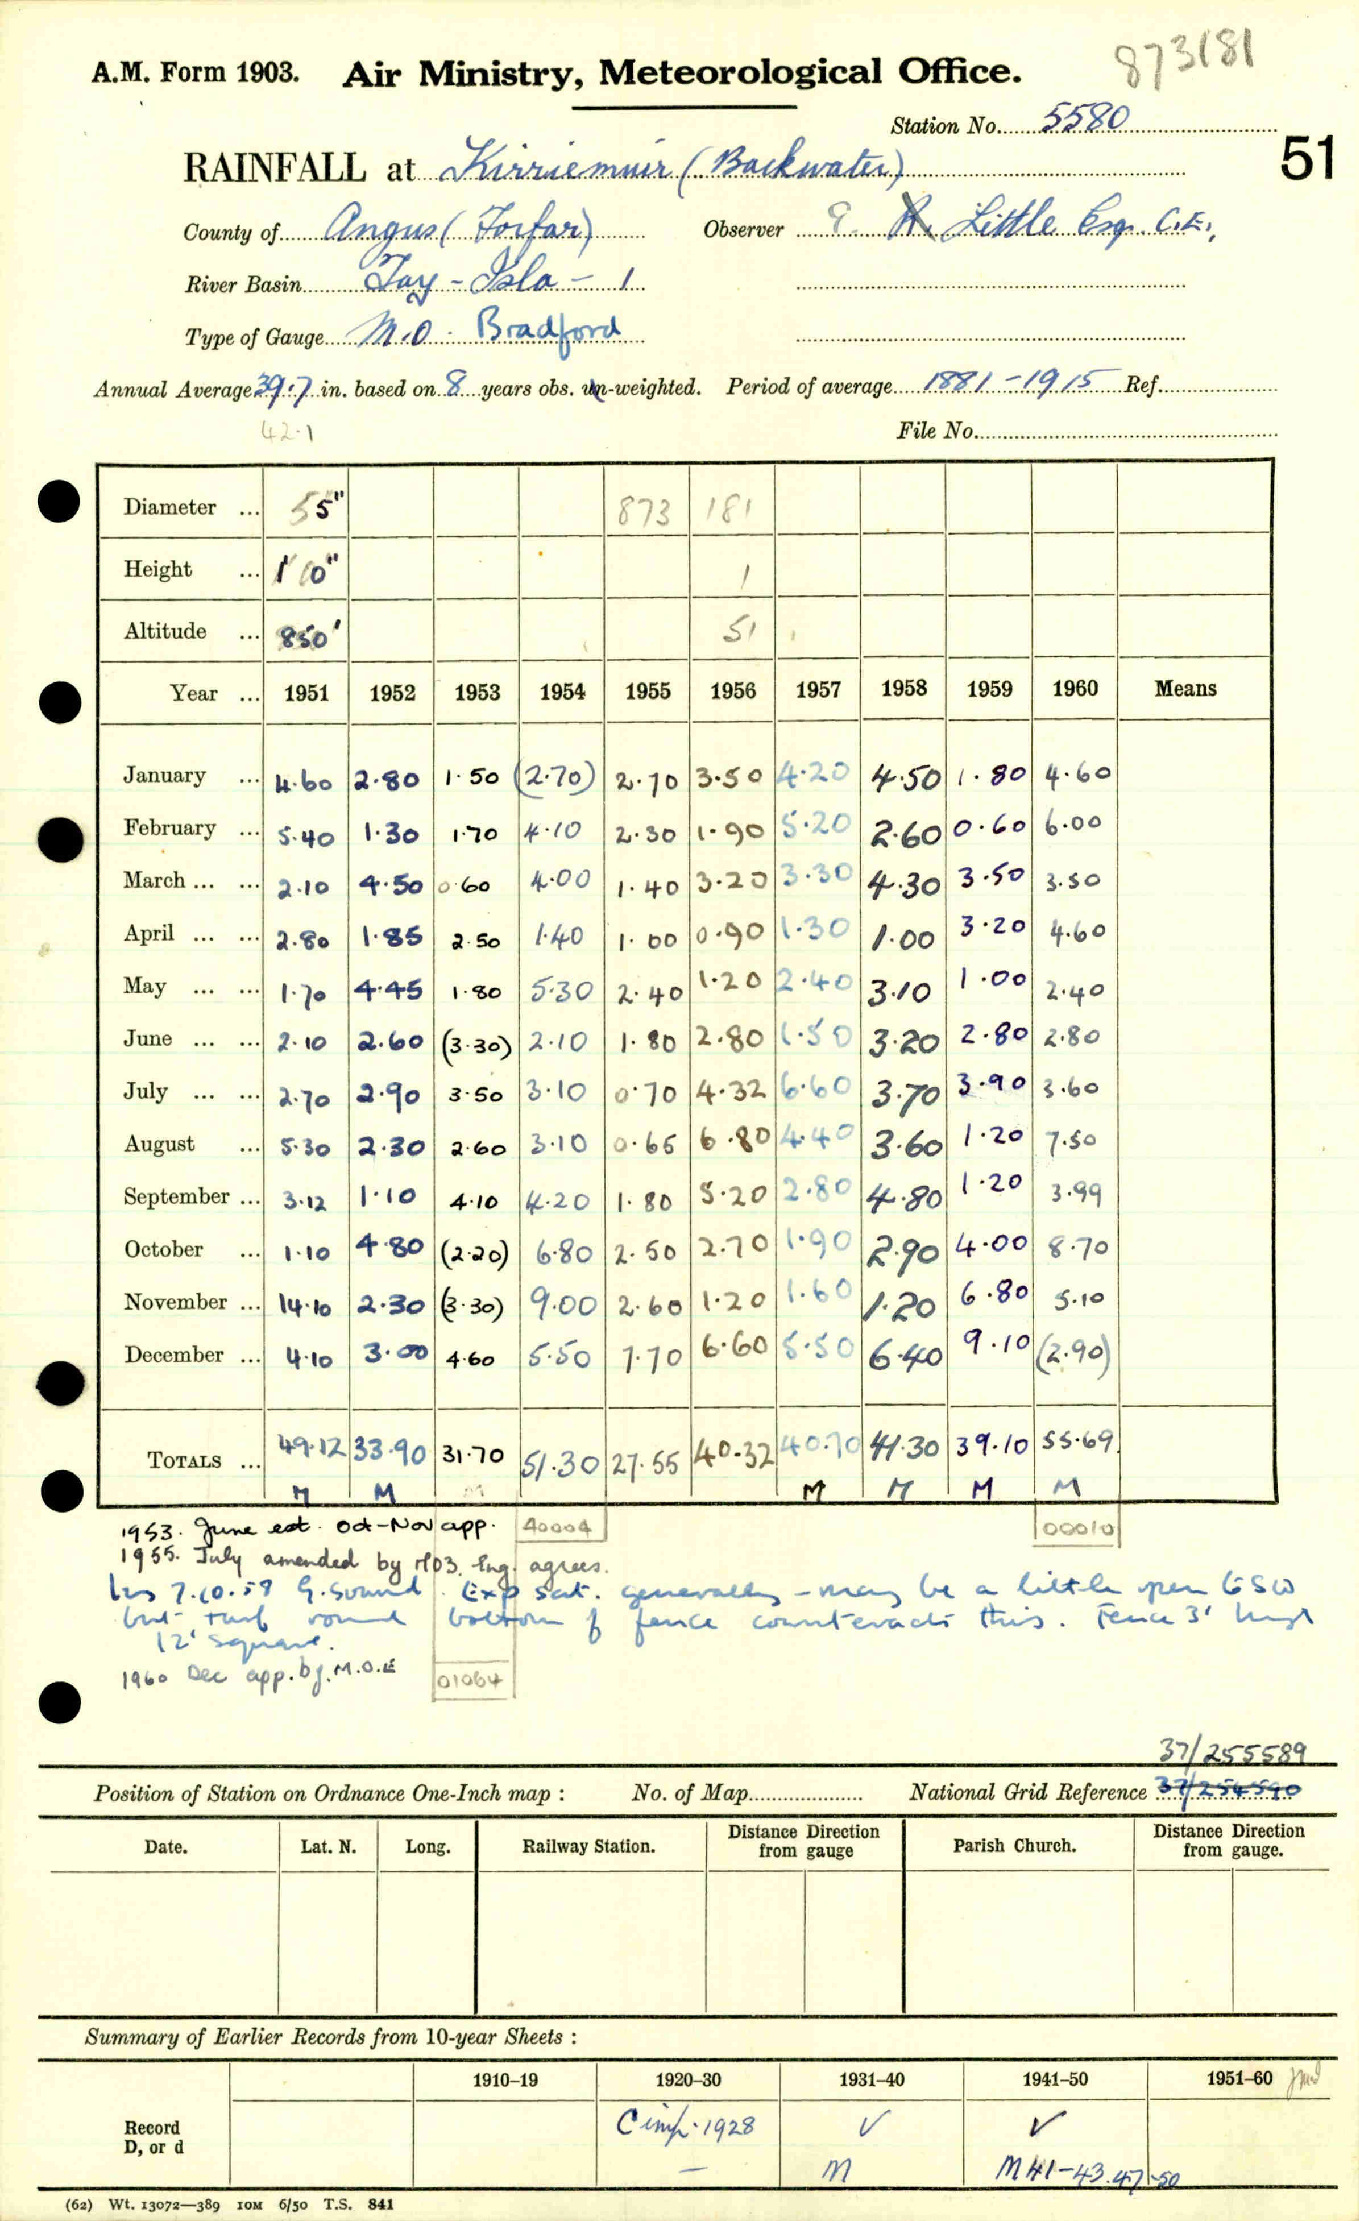 873181
A.M. Form 1903. Air Ministry, Meteorological Office.
Station No. 5580
51
RAINFALL at Kirriemuir (Backwater)
County of Angus (Forfar) Observer R. Little Esq. C.E.,
River Basin Tay - Isla - 1
Type of Gauge M.O. Bradford
Annual Average 39.7 in. based on 8 years obs. un-weighted. Period of average 1881-1915 Ref.
42.1 File No.
Diameter ... 5" 873 181
Height ... 1'0" 1
Altitude ... 850' 51
Year ... 1951 1952 1953 1954 1955 1956 1957 1958 1959 1960 Means
January ... 4.60 2.80 1.50 (2.70) 2.70 3.50 4.20 4.50 1.80 4.60
February ... 5.40 1.30 1.70 4.10 2.30 1.90 5.20 2.60 0.60 6.00
March ... ... 2.10 4.50 0.60 4.00 1.40 3.20 3.30 4.30 3.50 3.50
April ... ... 2.80 1.85 2.50 1.40 1.00 0.90 1.30 1.00 3.20 4.60
May ... ... 1.70 4.45 1.80 5.30 2.40 1.20 2.40 3.10 1.00 2.40
June ... ... 2.10 2.60 (3.30) 2.10 1.80 2.80 1.50 3.20 2.80 2.80
July ... ... 2.70 2.90 3.50 3.10 0.70 4.32 6.60 3.70 3.90 3.60
August ... 5.30 2.30 2.60 3.10 0.65 6.80 4.40 3.60 1.20 7.50
September ... 3.12 1.10 4.10 4.20 1.80 5.20 2.80 4.80 1.20 3.99
October ... 1.10 4.80 (2.20) 6.80 2.50 2.70 1.90 2.90 4.00 8.70
November ... 14.10 2.30 (3.30) 9.00 2.60 1.20 1.60 1.20 6.80 5.10
December ... 4.10 3.00 4.60 5.50 7.70 6.60 5.50 6.40 9.10 (2.90)
TOTALS ... 49.12 33.90 31.70 51.30 27.55 40.32 40.70 41.30 39.10 55.69
M M M M M M M
1953. June est. Oct-Nov app. 40004 00010
1955. July amended by MO3. Eng. agrees.
Ins 7.10.58 G. Sound. Exp sat. generally - may be a little open to SW
but turf round bottom of fence counteracts this. Fence 3' high
12' square.
1960 Dec app. by. M.O.E 01064
37/255589
Position of Station on Ordnance One-Inch map : No. of Map National Grid Reference 37/254590
Date. Lat. N. Long. Railway Station. Distance from Direction gauge Parish Church. Distance from Direction gauge.
Summary of Earlier Records from 10-year Sheets :
1910–19 1920–30 1931–40 1941–50 1951–60
Record D, or d 1928 ✓ ✓
– M M 41-43.47-50
(62) Wt. 13072—389 10M 6/50 T.S. 841